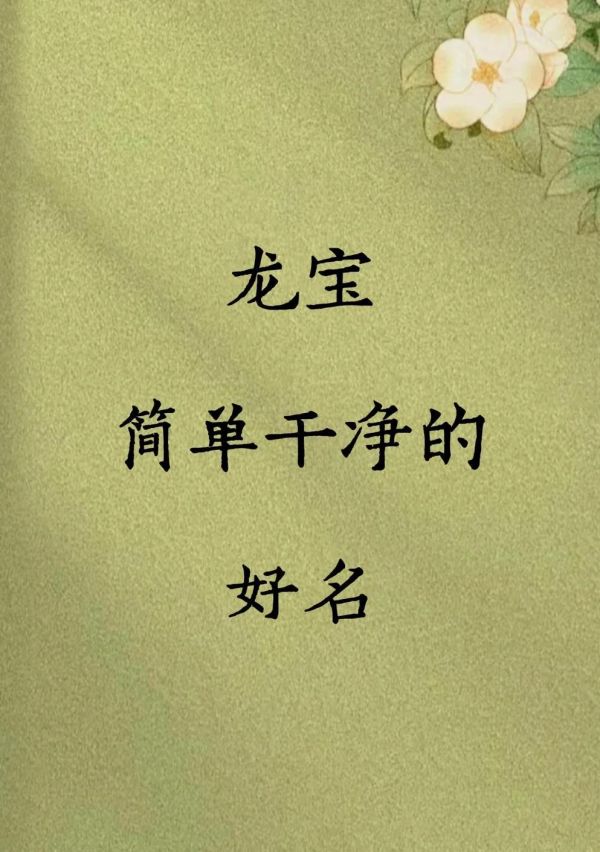 龙宝
简单干净的
好名